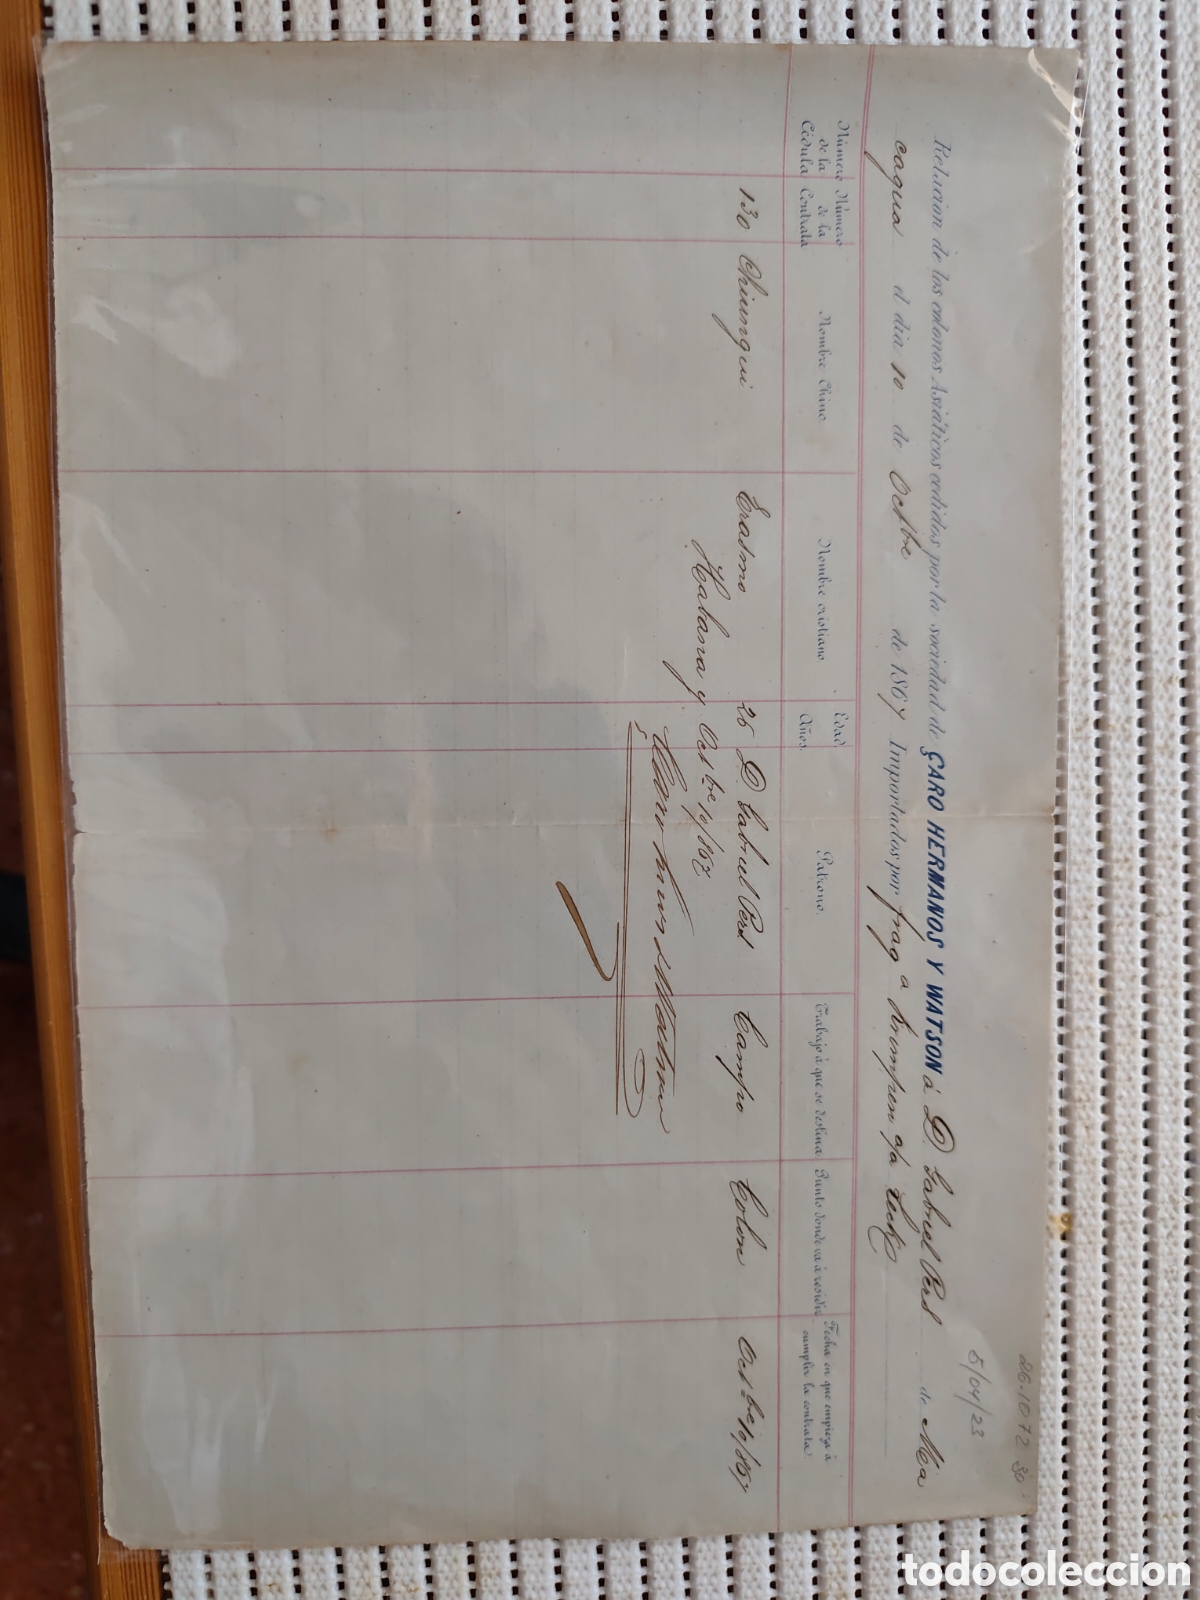 26.1072 30
5/04/23
Relacion de los colonos Asiáticos cedidos por la sociedad de CARO HERMANOS Y WATSON á D. Gabriel Perd de Ma
cagua el dia 10 de Octbre de 1867 Importados por frag a Krimpen a/a Leck
Número de la Cédula
Número de la Contrata
Nombre Chino
Nombre cristiano
Edad Años.
Patrono.
Trabajo á que se destina
Punto donde va á residir
Fecha en que empieza á cumplir la contrata
130 Chiungui Erasmo 26 D. Gabriel Perd Campo Colon Octbre 10/867
Habana y Octbre 10/867
Caro Hnos & Watson
todocoleccion